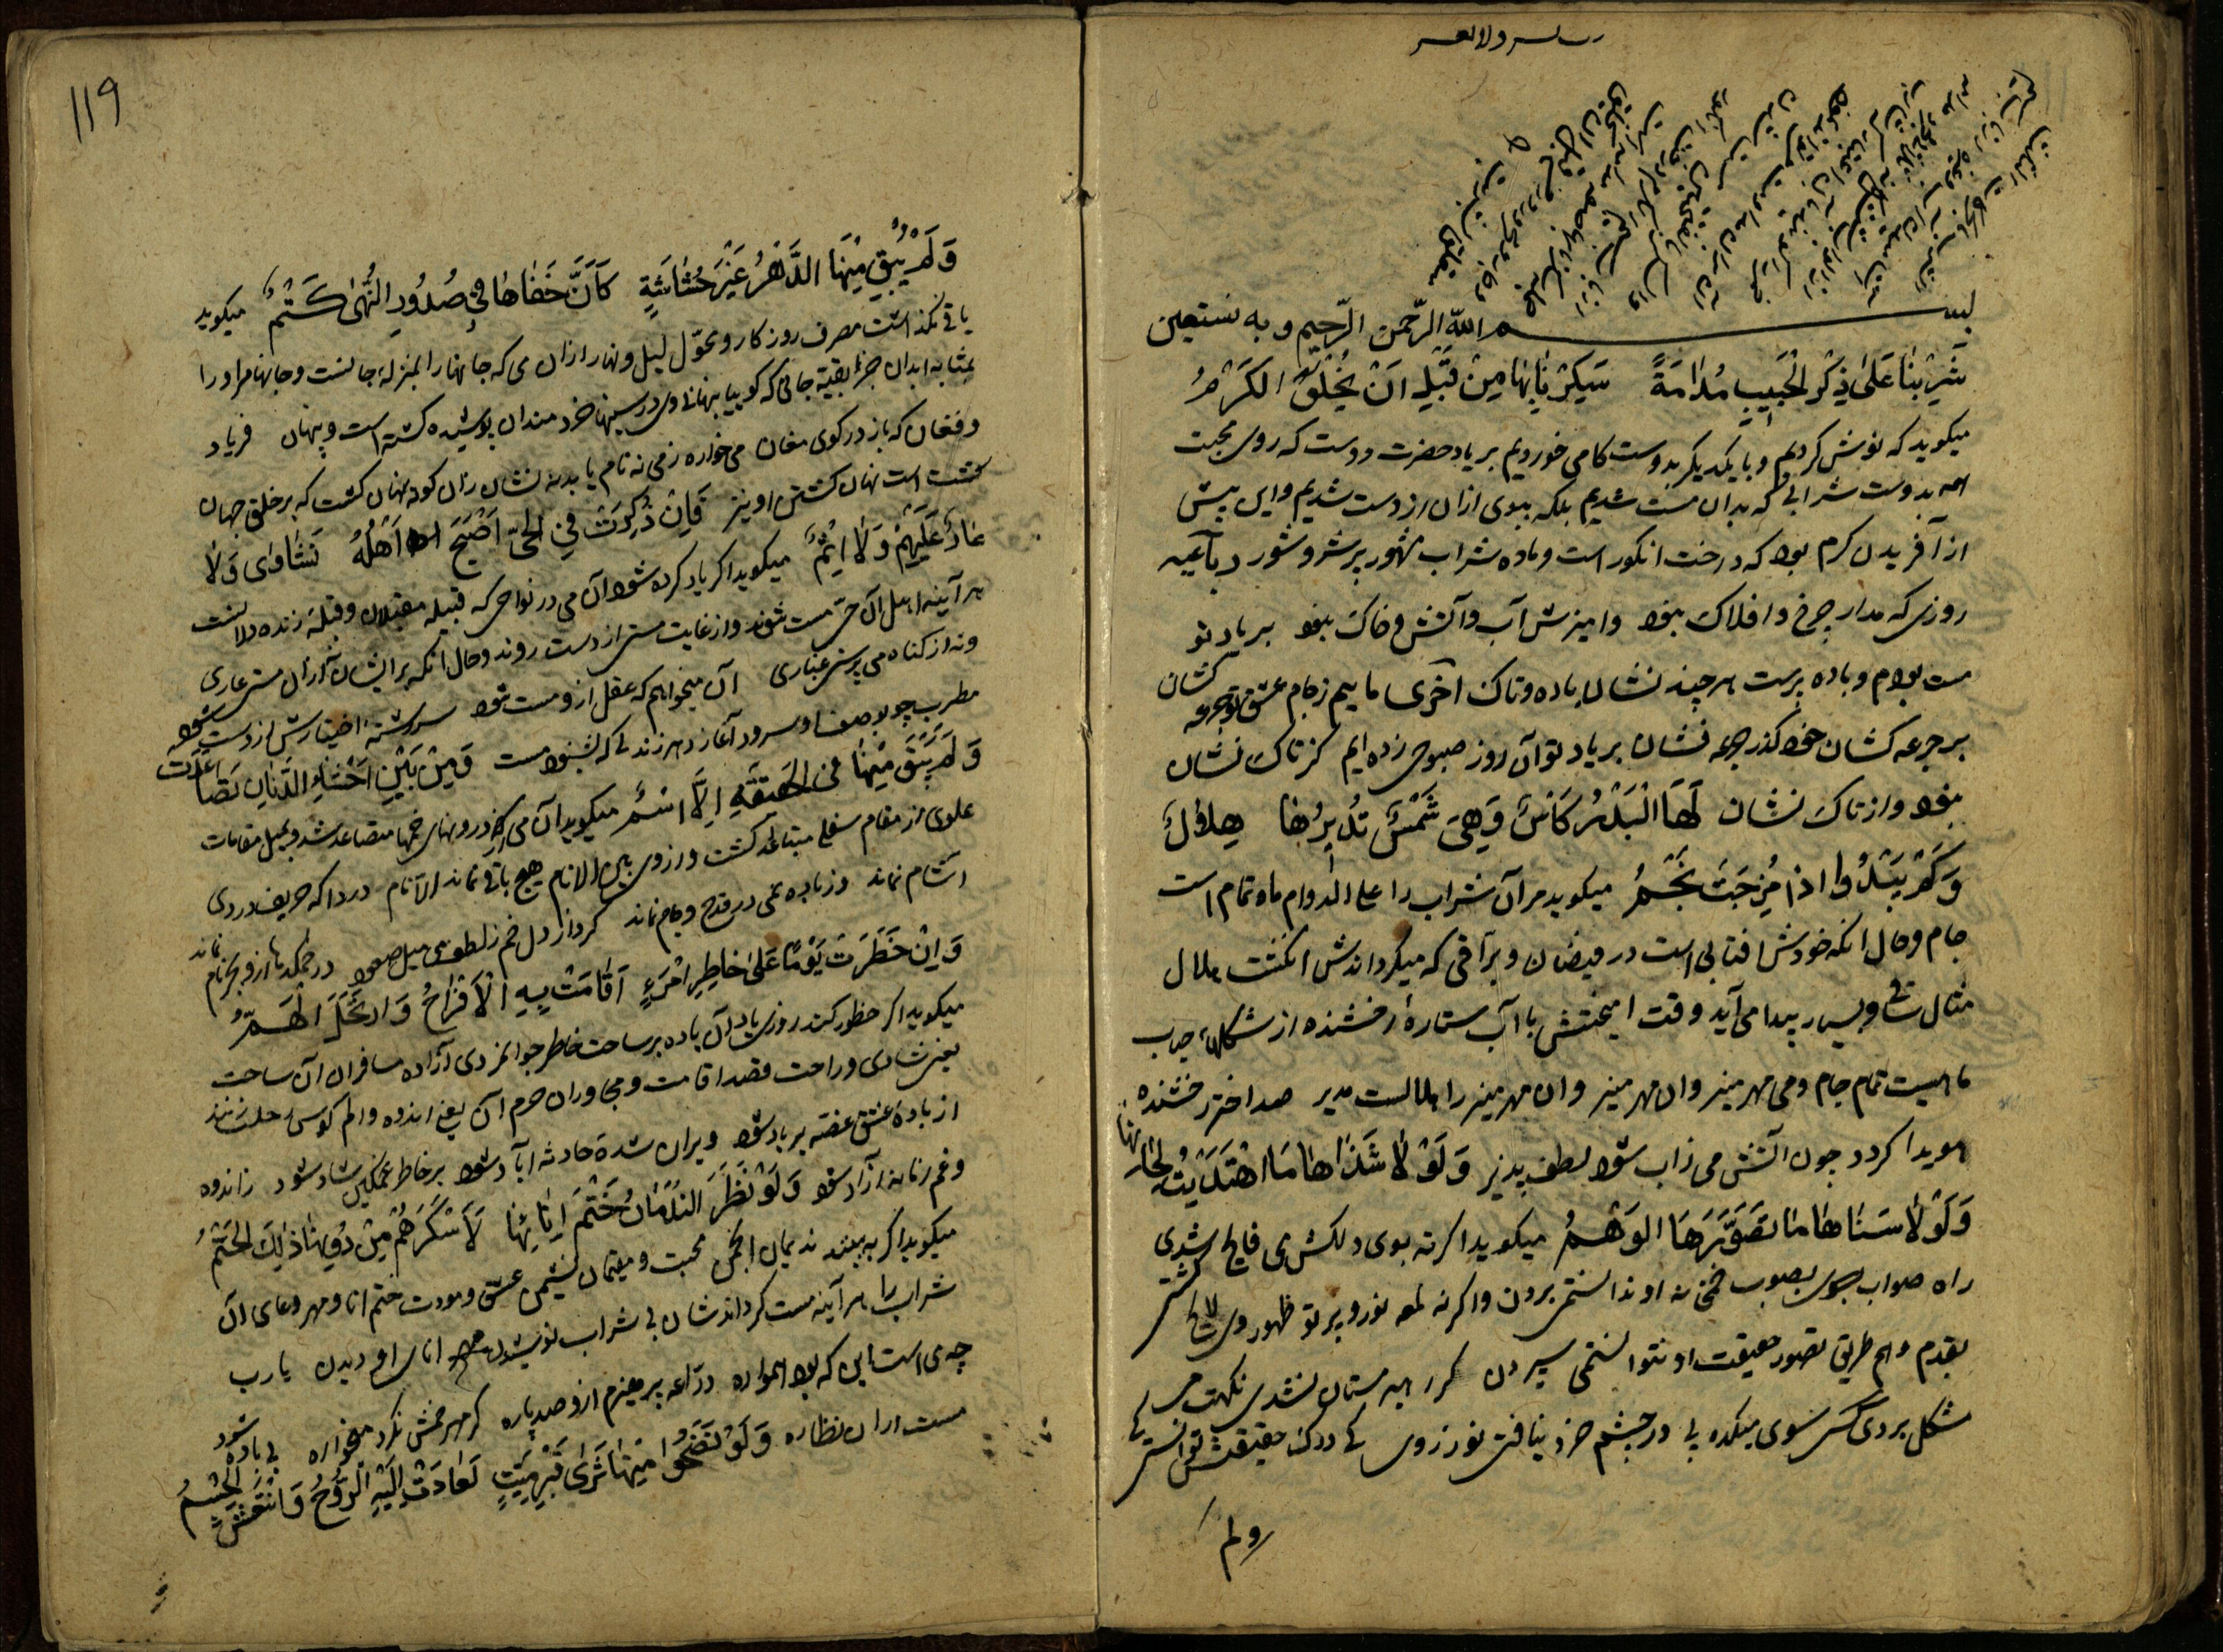 بسم الله الرّحمن الرّحيم وبه نستعين
شَرِبْنَا عَلَىٰ ذِكْرِ الْحَبِيبِ مُدَامَةً سَكِرْنَا بِهَا مِنْ قَبْلِ اَنْ يُخْلَقَ الْكَرْمُ
ميكويد كه نوش كرديم و با يكديكر بدوستكامى خورديم بر ياد حضرت دوست كه روى محبت
همه بدوست شرابى كه بدان مست شديم بلكه ببوى ازان از دست شديم و اين پيش
از آفريدن كرم بود كه درخت انكور است و ماده شراب مشهور پر شر و شور رباعيه
روزى كه مدار چرخ و افلاك نبود و اميزش آب و آتش و خاك نبود بر ياد تو
مست بودم و باده پرست هر چند نشان باده و تاك اخرى ماييم ز جام عشق تو جرعه كشان
بر جرعه كشان خود كذر جرعه فشان بر ياد تو آن روز صبوحى زده ايم كز تاك نشان
نبود و از تاك نشان لَهَا الْبَدْرُ كَأْسٌ وَهِيَ شَمْسٌ تُدِيرُهَا هِلَالٌ
وَكَمْ يَبْدُو اِذَا مُزِجَتْ نَجْمُ ميكويد مر آن شراب را على الدوام ماه تمام است
جام و حال انكه خودش افتابى است در فيضان و براقى كه ميكرداندش انكشت هلال
مثال ساقى و بسيار پيدا مى آيد وقت اميختنش با آب ستارۀ رخشنده از شكلهاء حباب
ماهيست تمام جام و مى مهر منير وان مهر منير را هلالست مدير صد اختر رخشنده
هويدا كردد چون آتش مى ز آب شود لطف پذير وَلَوْلَا شَذَاهَا مَا اهْتَدَيْتُ لِحَانِهَا
وَلَوْلَا سَنَاهَا مَا تَصَوَّرَهَا الْوَهْمُ ميكويد اكر نه بوى دلكش وى فايح شدى
راه صواب بصوب خمخانه او ندانستمى بردن و اكر نه لمعه نور و پرتو ظهور وى لايح كشتى
بقدم وهم طريق تصور حقيقت او نتوانستمى سپردن كر رهبر مستان نشدى نكهت مى
مشكل بردى كس سوى ميكده پى ور چشم خرد نيافتى نور ز وى كى درك حقيقتش توانستى كى
ولم
119
وَلَمْ يُبْقِ مِنْهَا الدَّهْرُ غَيْرَ حُشَاشَةٍ كَاَنَّ خَفَاهَا فِي صُدُورِ النُّهَىٰ كَتْمُ ميكويد
باقى نكذاشت صرف روزكار و تحوّل ليل و نهار ازان مى كه جانها را بمنزلۀ جانست و جانها مر او را
بمثابۀ ابدان جز بقيۀ جانى كه كوييا پنهانى وى در سينهاء خردمندان پوشيده كشته است و پنهان فرياد
و فغان كه باز در كوى مغان ميخواره ز مى نه نام يابد نه نشان زان كونه نهان كشت كه بر خلق جهان
كشتست نهان كشتن او نيز فَاِنْ ذُكِرَتْ فِي الْحَيِّ اَصْبَحَ اَهْلُهُ نَشَاوَى وَلَا
عَارٌ عَلَيْهِمْ وَلَا اِثْمُ ميكويد اكر ياد كرده شود آن مى در نواحى كه قبيلۀ مقبلان و قبلۀ زنده دلانست
هر آينه اهل آن حى مست شوند و از غايت مستى از دست روند و حال آنكه بر ايشان ازان مستى عارى
و نه از كناه مى پرستى غبارى آن ميخواهم كه عقل ازو مست شود سررشتۀ اختيارش از دست شود
مطرب چو بوصف او سرود آغازد هر زنده دلى كه بشنود مست شود وَمِنْ بَيْنِ اَحْشَاءِ الدِّنَانِ تَصَاعَدَتْ
وَلَمْ يَبْقَ مِنْهَا فِي الْحَقِيقَةِ اِلَّا اسْمُ ميكويد آن مى از درونهاى خمها متصاعد شد و بميل مقامات
علوى از مقام سفلى متباعد كشت و از وى بين الانام هيچ باقى نماند الا نام دردا كه حريف دردى
آشام نماند وز باده نمى در قدح و جام نماند كرد از دل خم ز لطف مى ميل صعود در خمكدها ازو بجز نام نماند
وَاِنْ خَطَرَتْ يَوْمًا عَلَىٰ خَاطِرِ امْرِئٍ اَقَامَتْ بِهِ الْاَفْرَاحُ وَارْتَحَلَ الْهَمُّ
ميكويد اكر خطور كند روزى ياد آن باده بر ساحت خاطر جوانمردى آزاده مسافران آن ساحت
يعنى شادى و راحت قصد اقامت و مجاوران حرم آن يعنى اندوه و الم كوس رحلت زنند
از بادۀ عشق غصه بر باد شود ويران شدۀ حادثه آباد شود بر خاطر غمكين شاد شود ز اندوه
و غم زمانه آزاد شود وَلَوْ نَظَرَ النُّدْمَانُ خَتْمَ اِنَائِهَا لَاَسْكَرَهُمْ مِنْ دُونِهَا ذٰلِكَ الْخَتْمُ
ميكويد اكر به بينند نديمان انجمن محبت و مقيمان نشيمن عشق و مودت ختم انا و مهر وعاى آن
شراب را هر آينه مست كرداندشان بى شراب نوشيدن مهر اناى او ديدن يا رب
چه مى است اين كه بود همواره دراعۀ پرهيزم ازو صد پاره كر مهر خمش نكرد ميخواره بى باده شود
مست ازان نظاره وَلَوْ نَضَحُوا مِنْهَا ثَرَىٰ قَبْرِ مَيِّتٍ لَعَادَتْ اِلَيْهِ الرُّوحُ وَانْتَعَشَ الْجِسْمُ